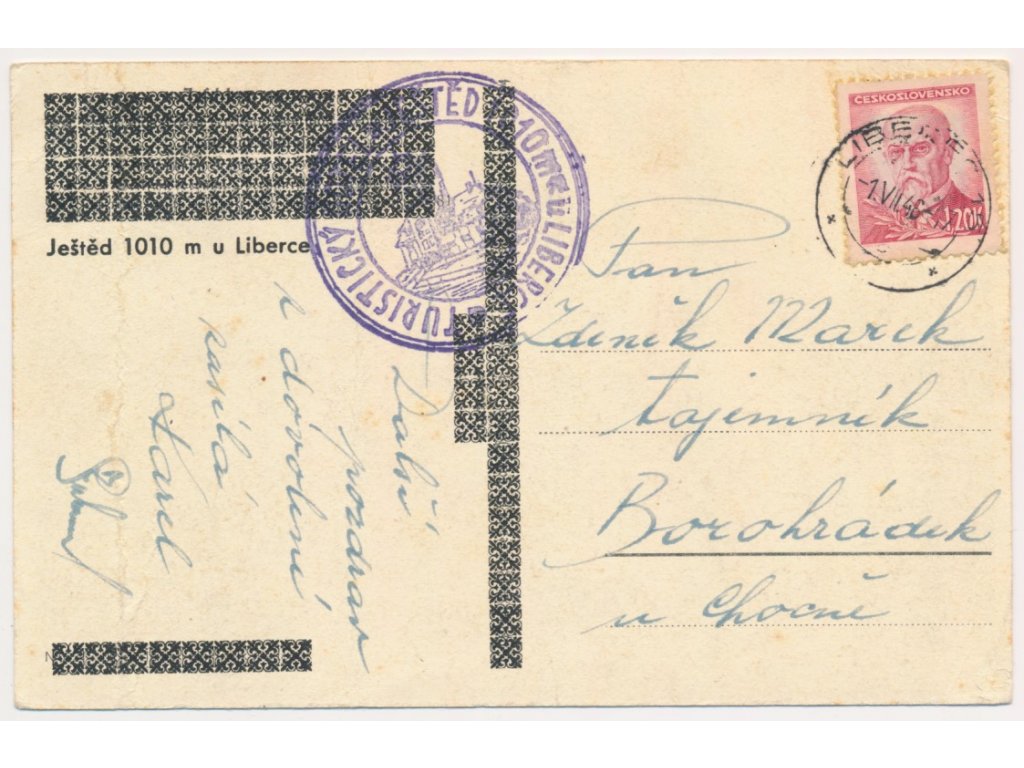 Ještěd 1010 m u Liberce
JEŠTĚD 1010 m u LIBERCE TURISTICKÝ
ČESKOSLOVENSKO
1.20 K
LIBEREC 1
-1.VII.46-
Pan
Zdeněk Marek
tajemník
Borohrádek
u Chocně
Další
pozdrav
z dovolené
zasílá
Karel
N